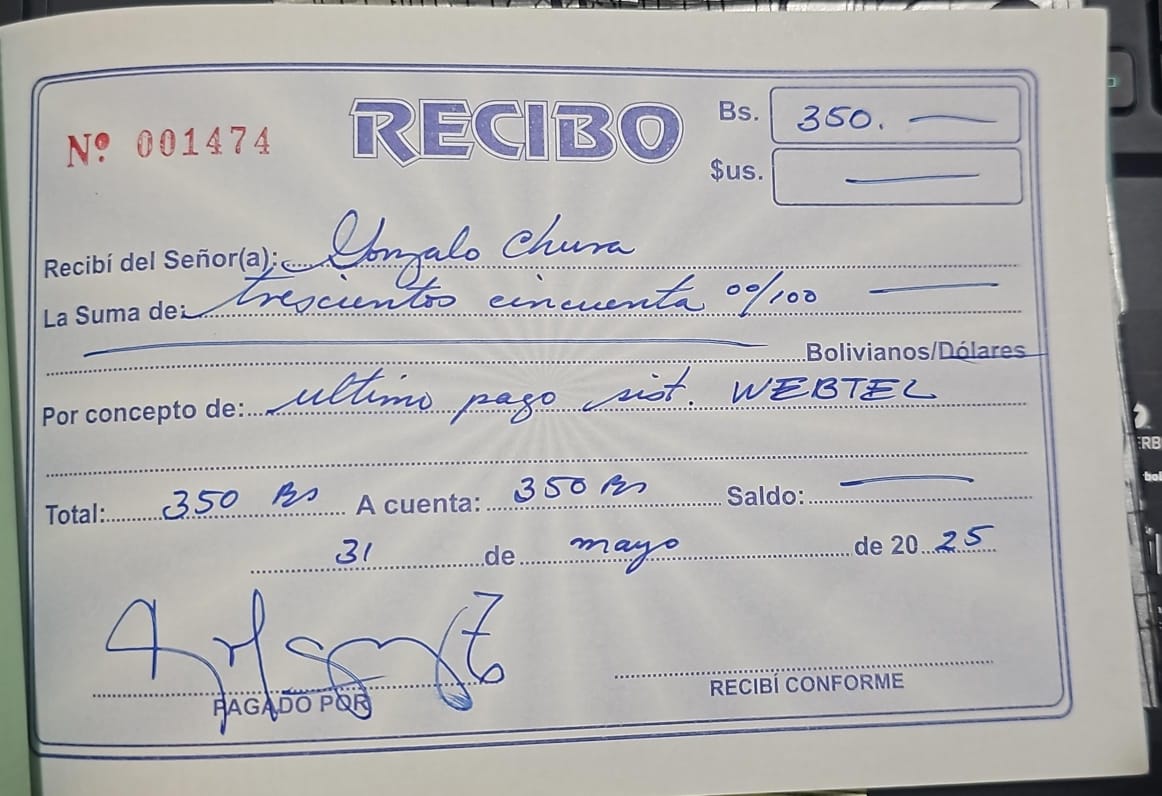 Nº 001474 RECIBO Bs. 350.
$us.
Recibí del Señor(a): Gonzalo Chura
La Suma de: trescientos cincuenta 00/100
Bolivianos/Dólares
Por concepto de: ultimo pago sist. WEBTEL
Total: 350 Bs A cuenta: 350 Bs Saldo:
31 de mayo de 20 25
PAGADO POR RECIBÍ CONFORME